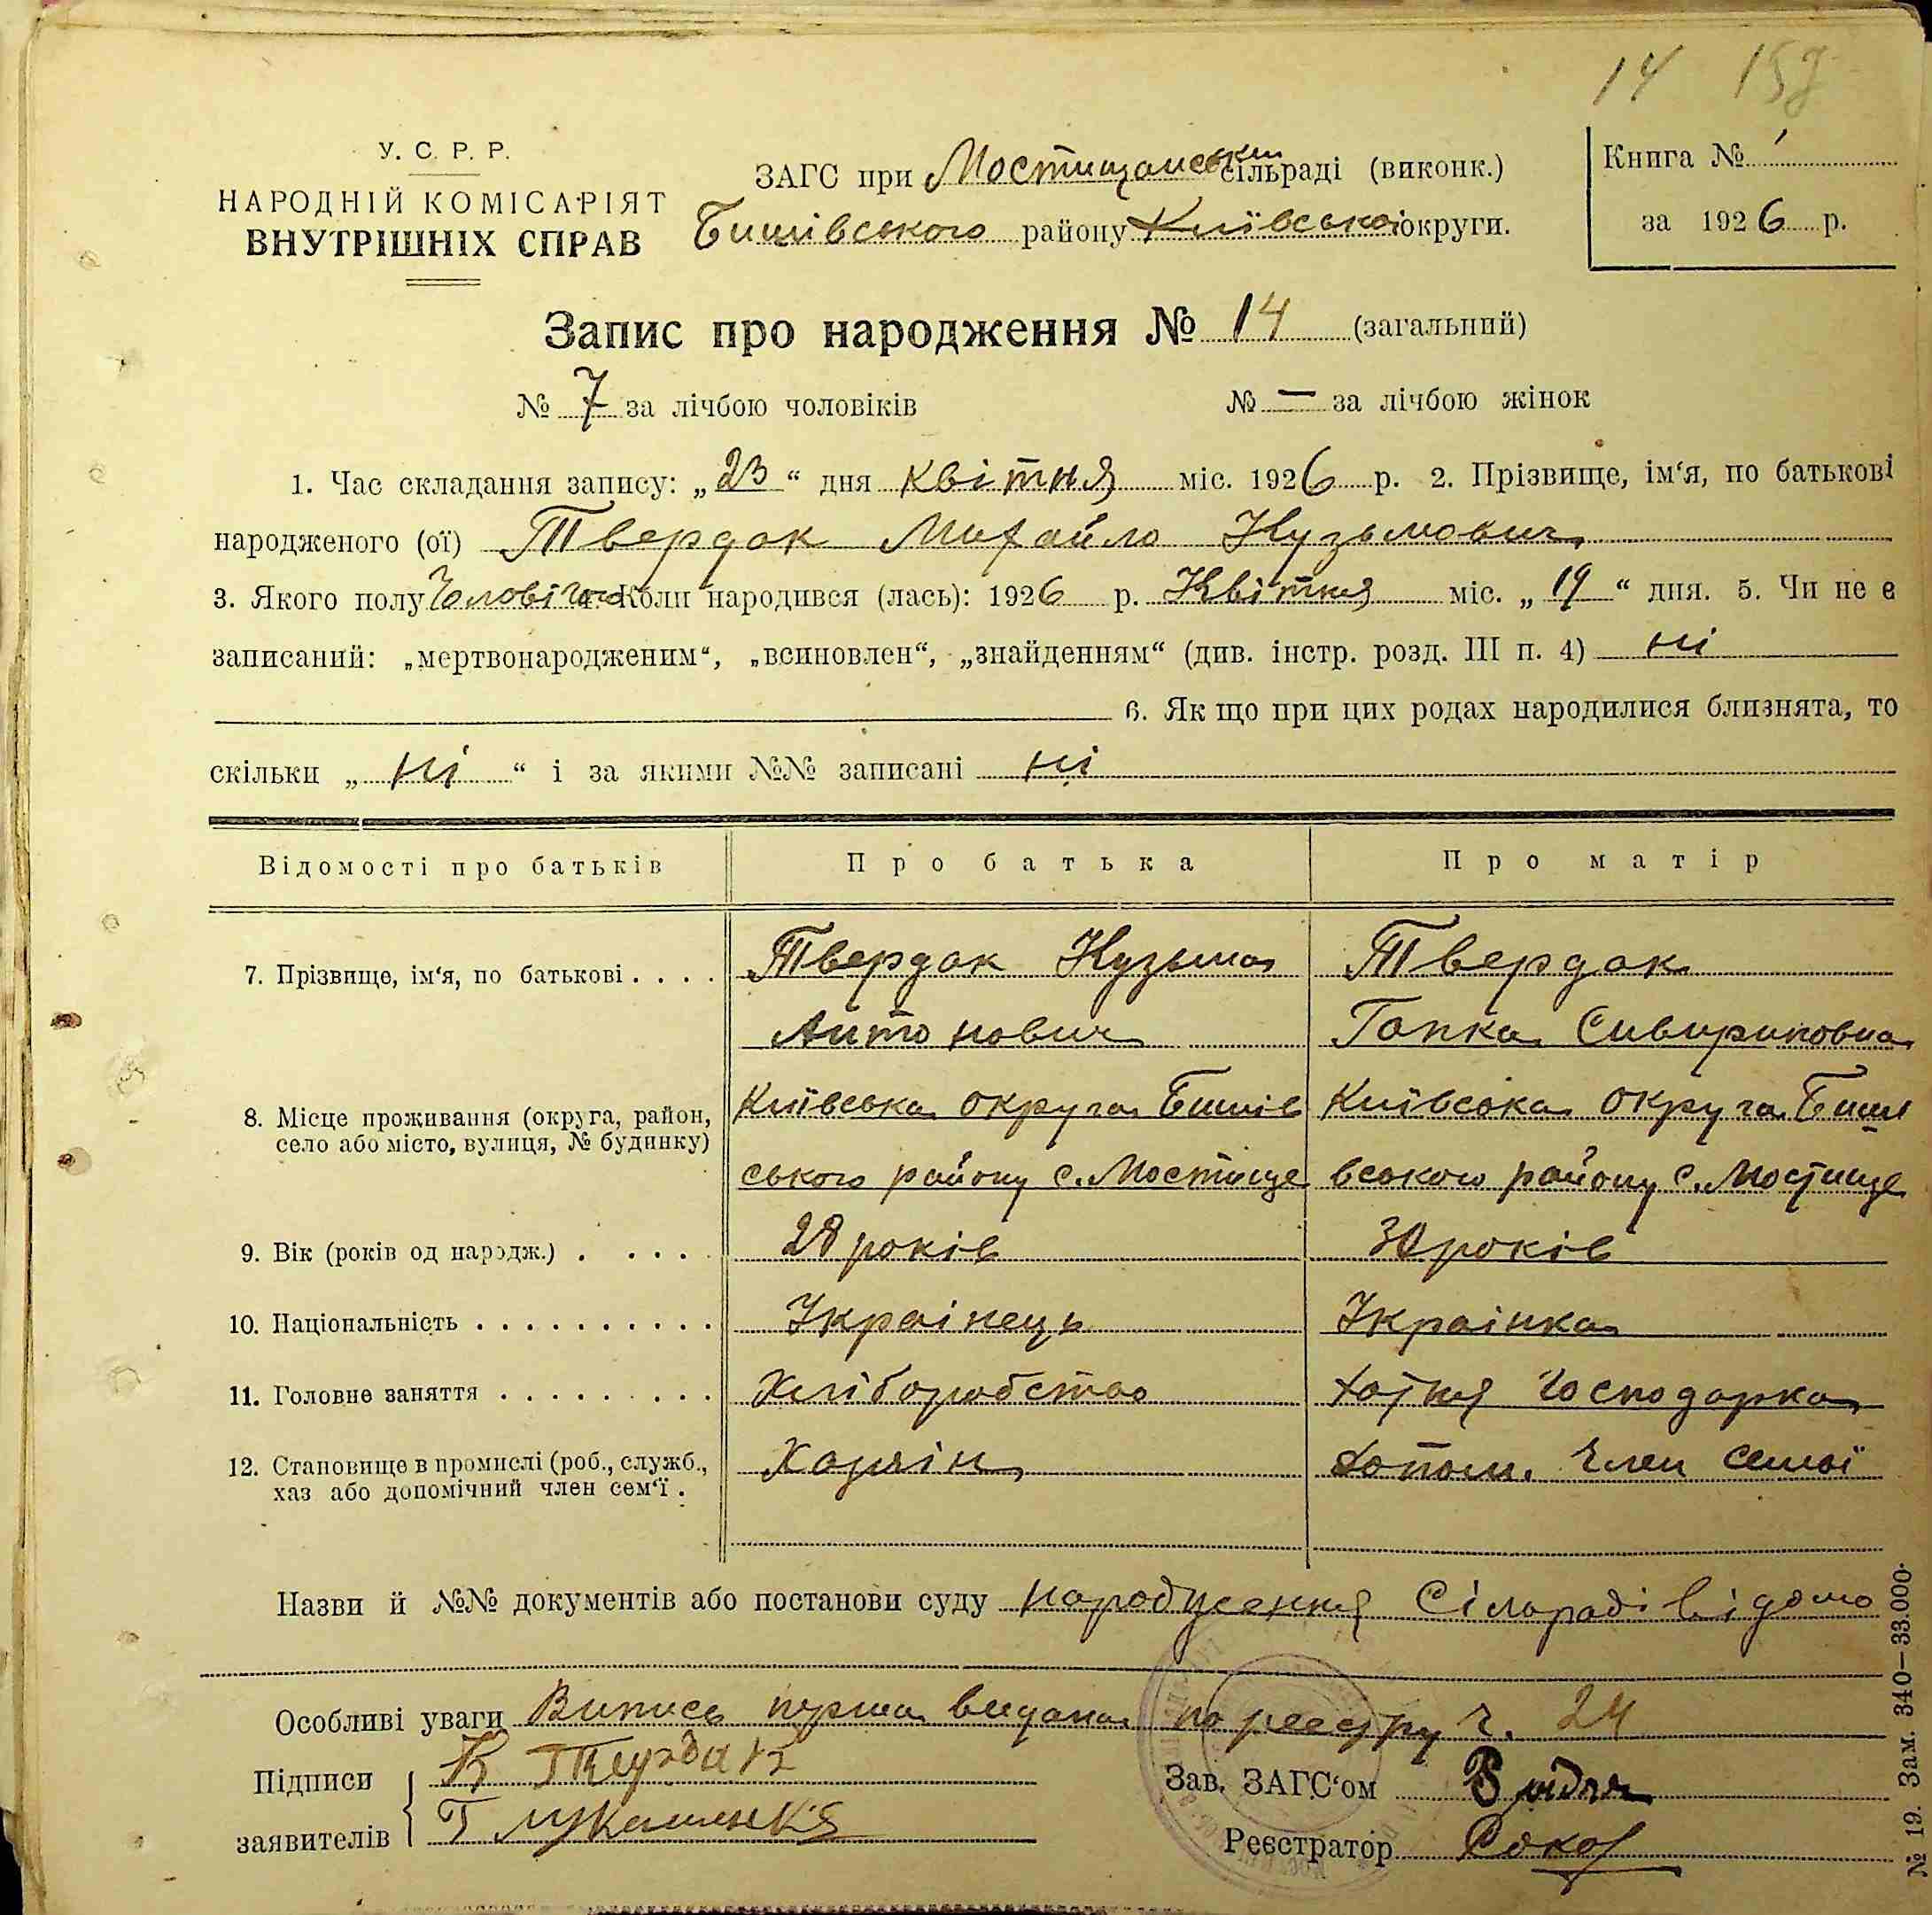 14 157
У. С. Р. Р.
НАРОДНІЙ КОМІСАРІЯТ
ВНУТРІШНІХ СПРАВ
ЗАГС при Мостищанській сільраді (виконк.)
Бишівського району Київської округи.
Книга № 1
за 1926 р.
Запис про народження № 14 (загальний)
№ 7 за лічбою чоловіків № — за лічбою жінок
1. Час складання запису: „23“ дня квітня міс. 1926 р. 2. Прізвище, ім‘я, по батькові
народженого (ої) Твердак Михайло Кузьмович
3. Якого полу Чоловічого 4. Коли народився (лась): 1926 р. Квітня міс. „19“ дня. 5. Чи не є
записаний: „мертвонародженим“, „всиновлен“, „знайденням“ (див. інстр. розд. III п. 4) ні
6. Як що при цих родах народилися близнята, то
скільки „ні“ і за якими №№ записані ні
Відомості про батьків Про батька Про матір
7. Прізвище, ім‘я, по батькові . . . . Твердак Кузьма Твердак
Антонович Гапка Сивириновна
8. Місце проживання (округа, район, Київська округа Бишів Київська округа Биші
село або місто, вулиця, № будинку)
ського району с. Мостище вського району с. Мостище
9. Вік (років од народж.) . . . . 28 років 30 років
10. Національність . . . . . . . . . . Українець Українка
11. Головне заняття . . . . . . . . . Хліборобство хатня господарка
12. Становище в промислі (роб., служб., Хазяїн допом. член семьї
хаз або допомічний член сем‘ї .
Назви й №№ документів або постанови суду народження Сільраді відомо
Особливі уваги Випись перша видана по реєстру ч. 24
Підписи К Твердак Зав. ЗАГС‘ом
заявителів Г Лукашенко Реєстратор
№ 19. Зам. 340—33.000.